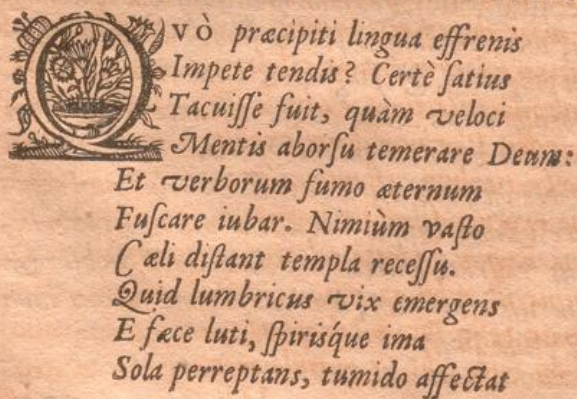 QVÒ præcipiti lingua effrenis
Impete tendis? Certè ſatius
Tacuiſſe fuit, quàm veloci
Mentis aborſu temerare Deum:
Et verborum fumo æternum
Fuſcare iubar. Nimiùm vaſto
Cæli diſtant templa receſſu.
Quid lumbricus vix emergens
E fæce luti, ſpirisq́ue ima
Sola perreptans, tumido affectat